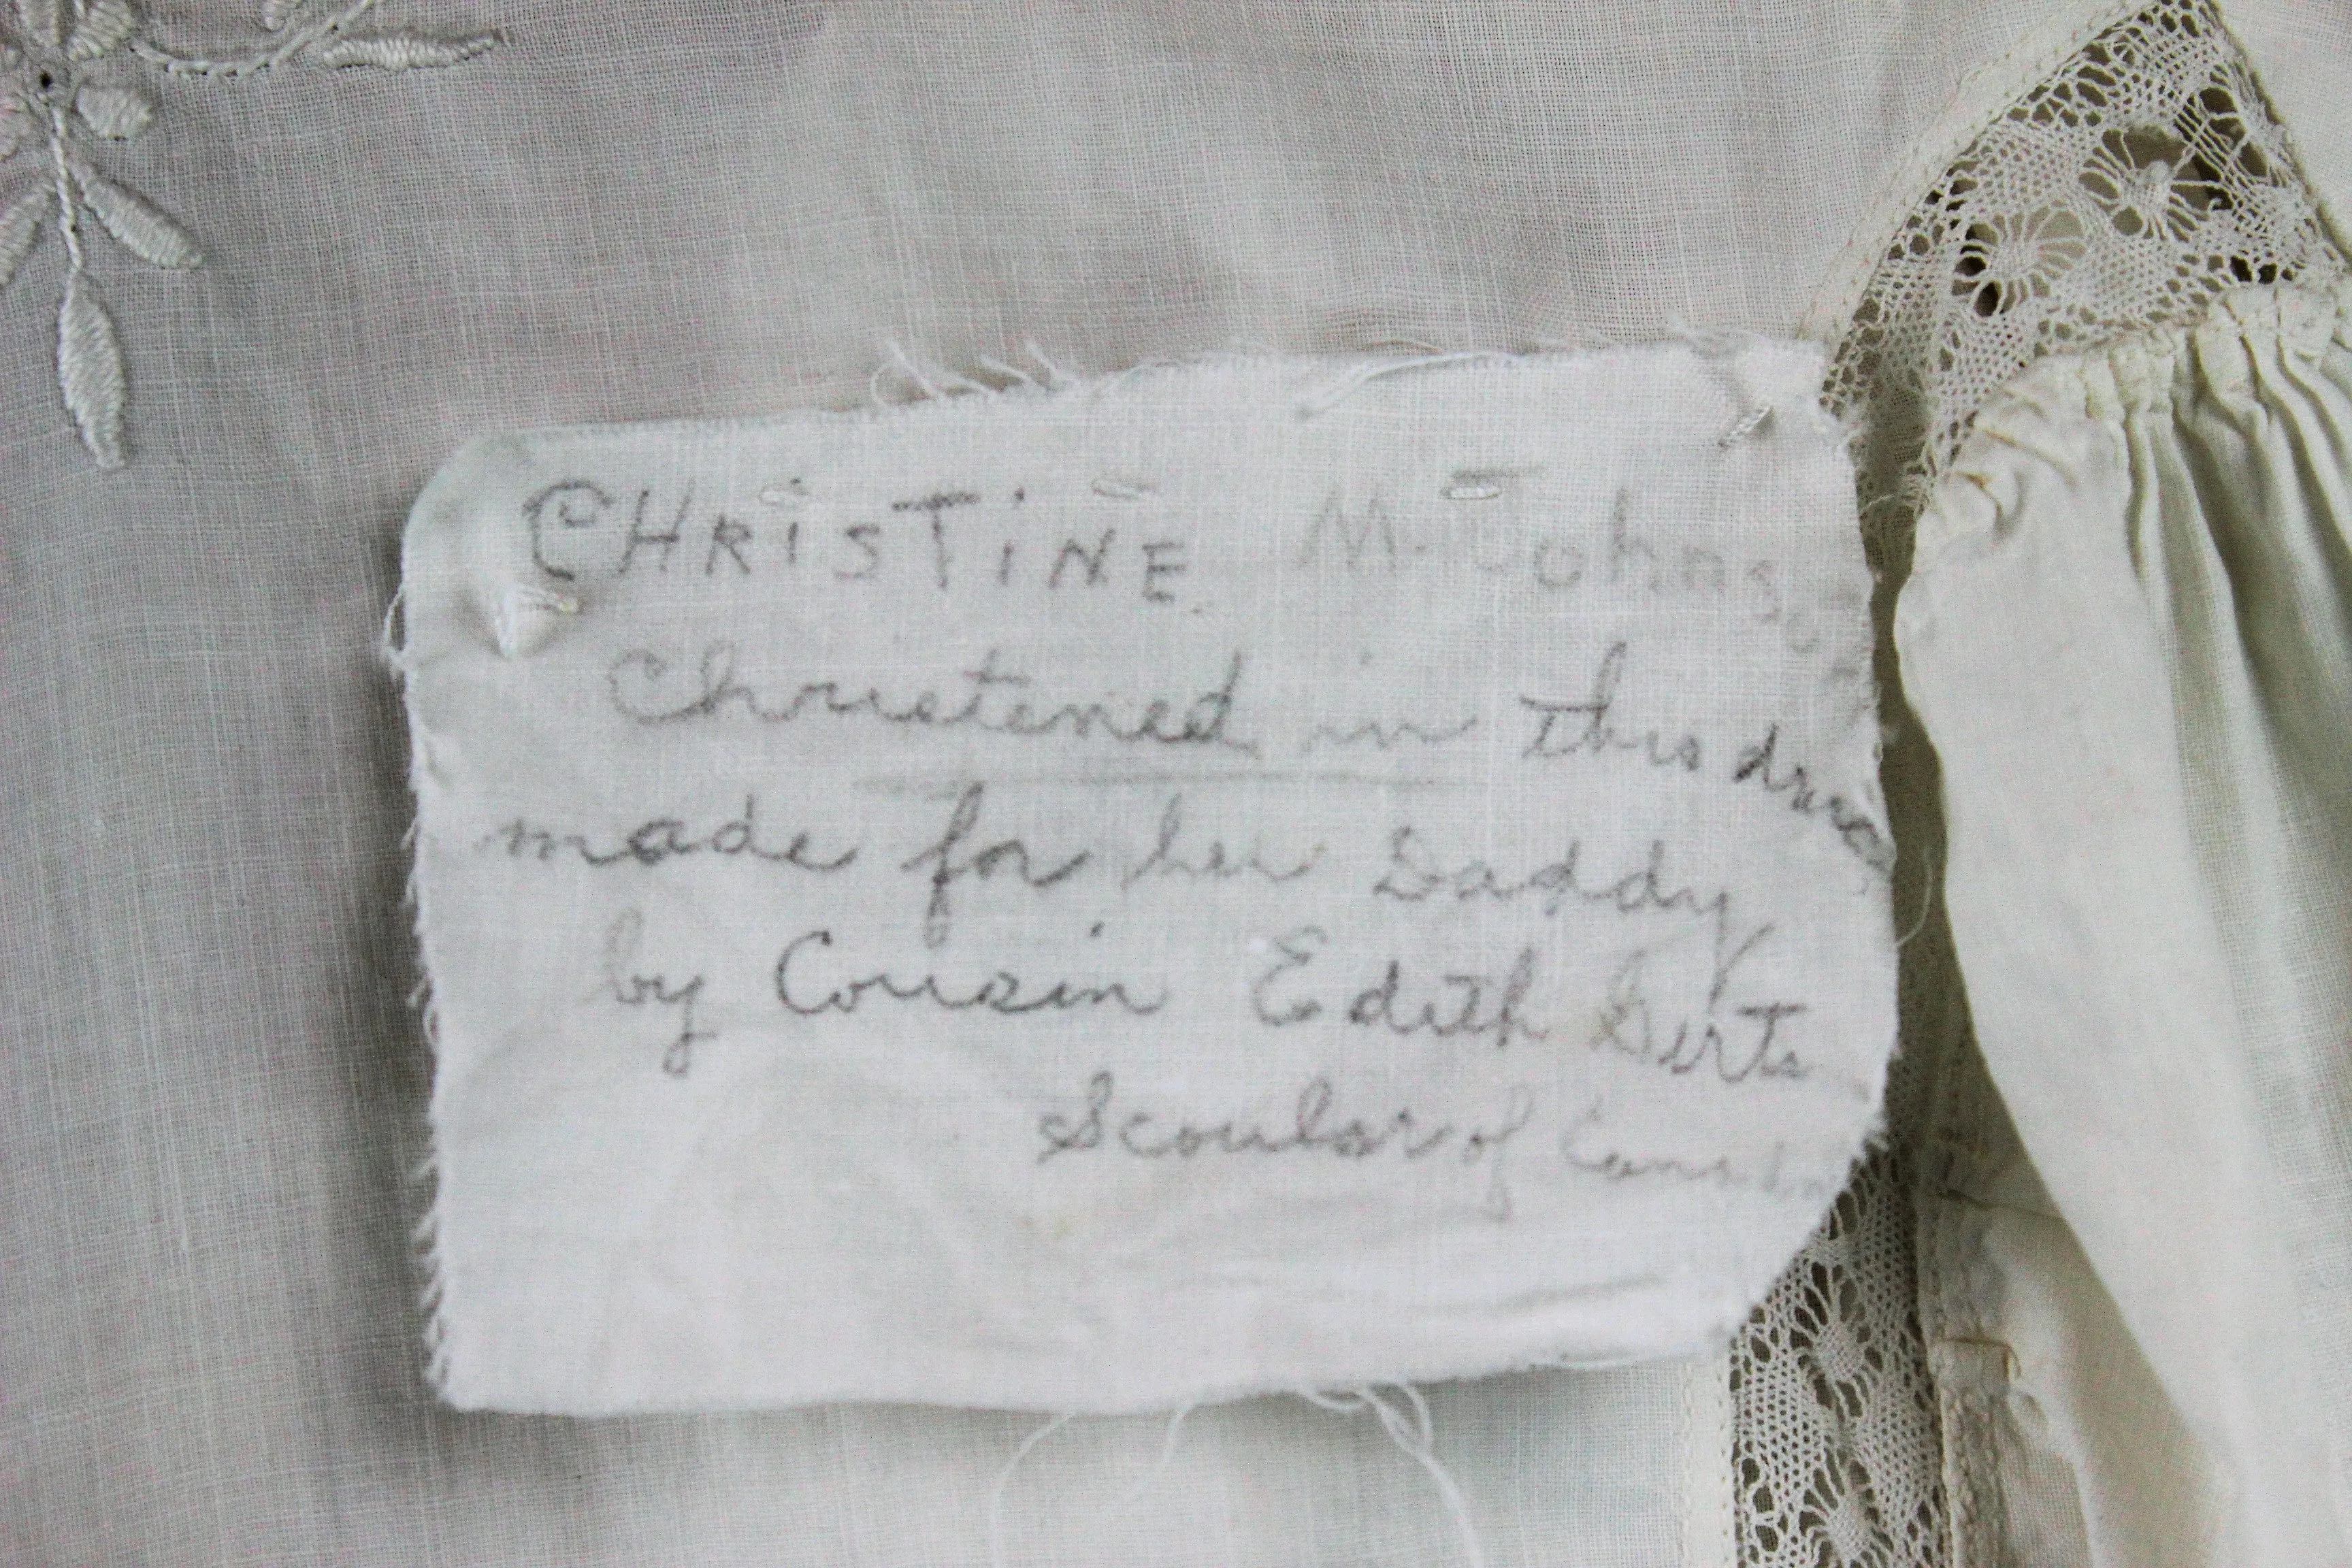 CHRiSTiNE M. Johnson
Christened in this dress
made for her Daddy
by Cousin Edith
Scoular of